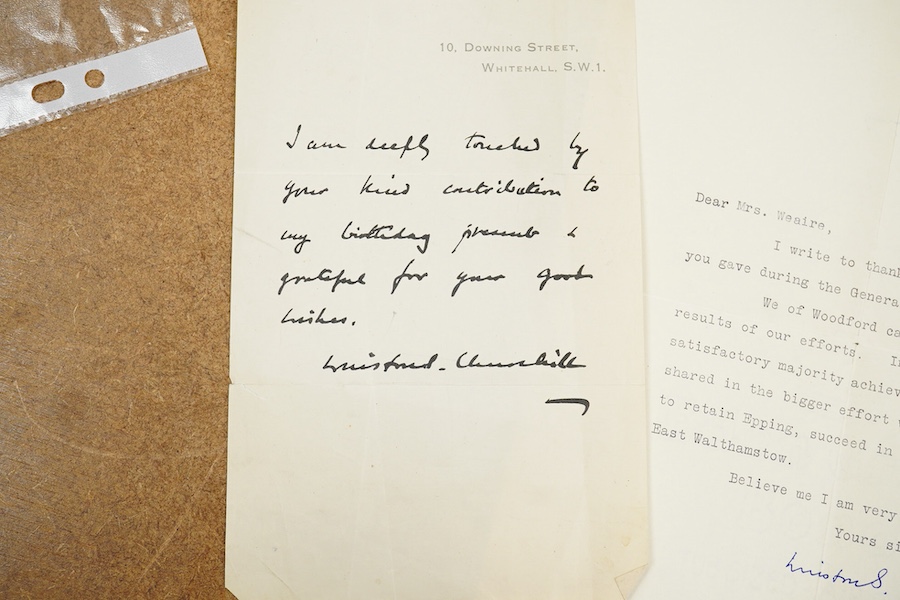 10, DOWNING STREET,
WHITEHALL, S.W.1.
I am deeply touched by
your kind contribution to
my birthday present &
grateful for your good
wishes.
Winston S. Churchill
Dear Mrs. Weaire,
I write to thank
you gave during the Genera
We of Woodford ca
results of our efforts. In
satisfactory majority achiev
shared in the bigger effort w
to retain Epping, succeed in
East Walthamstow.
Believe me I am very
Yours si
Winston S.